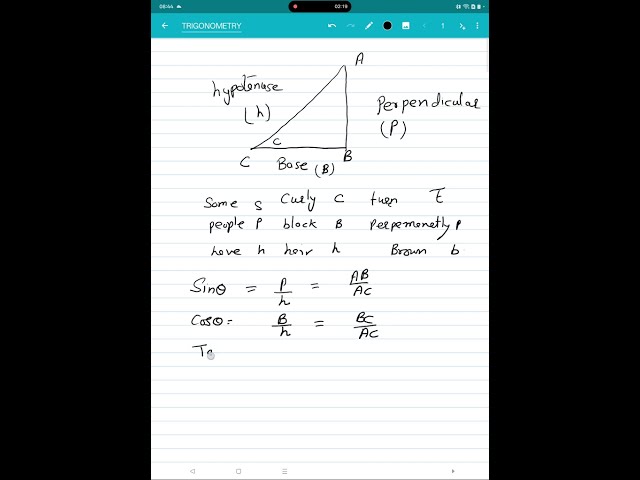 08:44 02:19
TRIGONOMETRY 1
A
hypotenuse
(h)
Perpendicular
(P)
C
C B
Base (B)
Some S Curly C turn T
people P black B Perpemonetly P
have h hair h Brown b
Sinθ = P/h = AB/AC
Cosθ = B/h = BC/AC
Ta